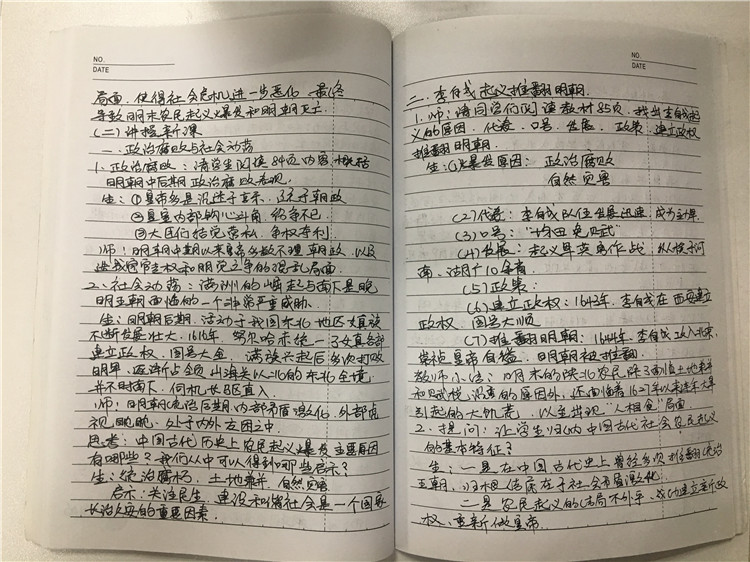 NO.
DATE
局面，使得社会危机进一步恶化，最终
导致明末农民起义爆发和明朝灭亡。
(二)讲授新课
一、政治腐败与社会动荡
1、政治腐败：请学生阅读84页内容，概括
明朝中后期政治腐败表现。
生：①皇帝多是沉迷于享乐，疏于朝政
②皇室内部勾心斗角，纷争不已
③大臣们结党营私，争权夺利
师：明朝中期以来皇帝多数不理朝政，以及
造成宦官专权和朋党之争的混乱局面。
2、社会动荡：满洲的崛起与南下是晚
明王朝面临的一个非常严重威胁。
生：明朝后期，活动于我国东北地区女真族
不断发展壮大，1616年，努尔哈赤统一了女真各部
建立政权，国号大金，满族兴起后多次打败
明军，逐渐占领山海关以北的东北全境
并不时南下，伺机长驱直入
师：明朝统治后期内部矛盾激化，外部虎
视眈眈，处于内外交困之中。
思考：中国古代历史上农民起义爆发主要原因
有哪些？我们从中可以得到哪些启示？
生：统治腐朽，土地兼并，自然灾害
启示：关注民生，建设和谐社会是一个国家
长治久安的重要因素。
NO.
DATE
二、李自成起义推翻明朝
1、师：请同学们阅读教材85页，找出李自成起
义的原因，代表，口号，发展，政策，建立政权
推翻明朝。
生：(1)爆发原因：政治腐败
自然灾害
(2)代表：李自成队伍发展迅速，成为主力军
(3)口号："均田免赋"
(4)发展：起义军英勇作战，从陕于河
南、湖广10余省
(5)政策：
(6)建立政权：1643年，李自成在西安建立
政权，国号大顺
(7)推翻明朝：1644年，李自成攻入北京，
崇祯皇帝自缢，明朝被推翻。
教师小结：明末的陕北农民除了面临土地兼并
和赋税沉重的原因外，还面临着1627年以来连年大旱
引起的大饥荒，以至出现"人相食"局面。
2、提问：让学生归纳中国古代社会农民起义
的基本特征？
生：一是在中国古代史上曾经多次推翻统治
王朝，归根结底在于社会矛盾激化。
二是农民起义的结局不外乎，成功建立新政
权，重新做皇帝